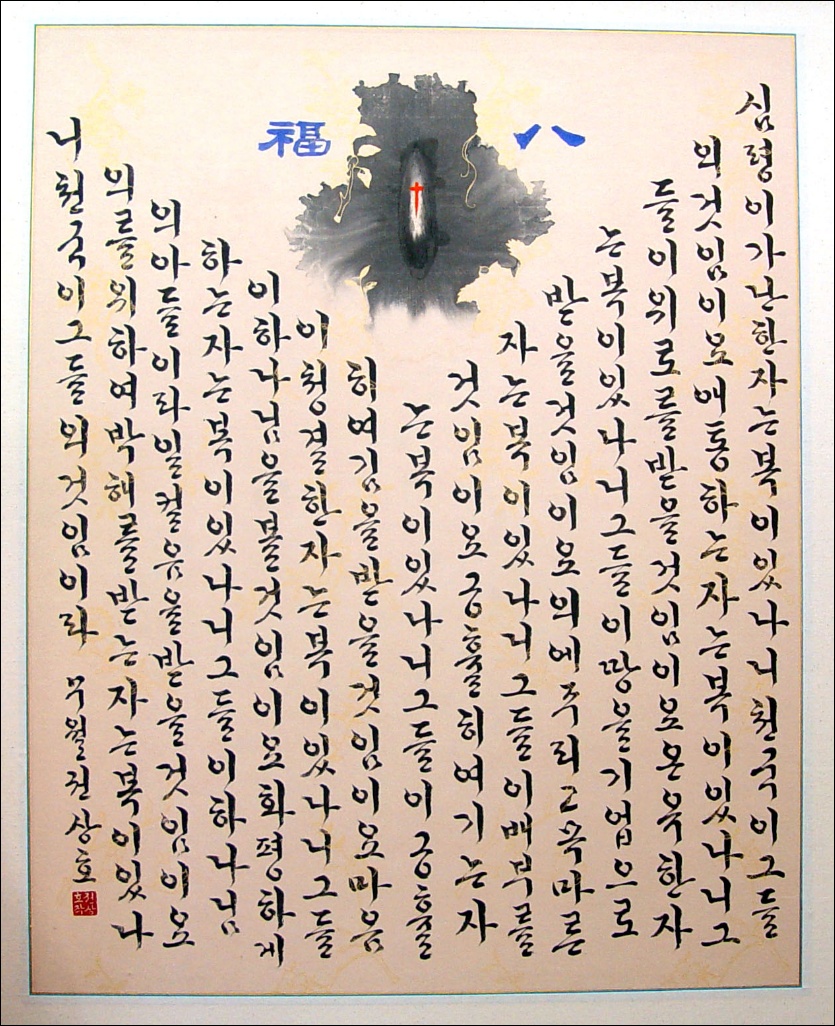 八福
심령이가난한자는복이있나니천국이그들
의것임이요애통하는자는복이있나니그
들이위로를받을것임이요온유한자
는복이있나니그들이땅을기업으로
받을것임이요의에주리고목마른
자는복이있나니그들이배부를
것임이요긍휼히여기는자
는복이있나니그들이긍휼
히여김을받을것임이요마음
이청결한자는복이있나니그들
이하나님을볼것임이요화평하게
하는자는복이있나니그들이하나님
의아들이라일컬음을받을것임이요
의를위하여박해를받는자는복이있나
니천국이그들의것임이라 무월